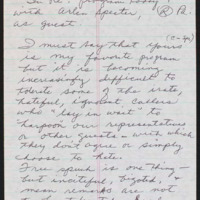 In re: Program
with Arlen Specter, (R) Pa.
as guest.
(C-SPAN)
I must say that yours
is my favorite program
but it is becoming
increasingly difficult to
tolerate some of the irate,
hateful, ignorant callers
who lay in wait to
harpoon our representatives
or other guests with which
they don't agree or simply
choose to hate.
Free speech is one thing -
but hateful, bigoted, &
mean remarks are not